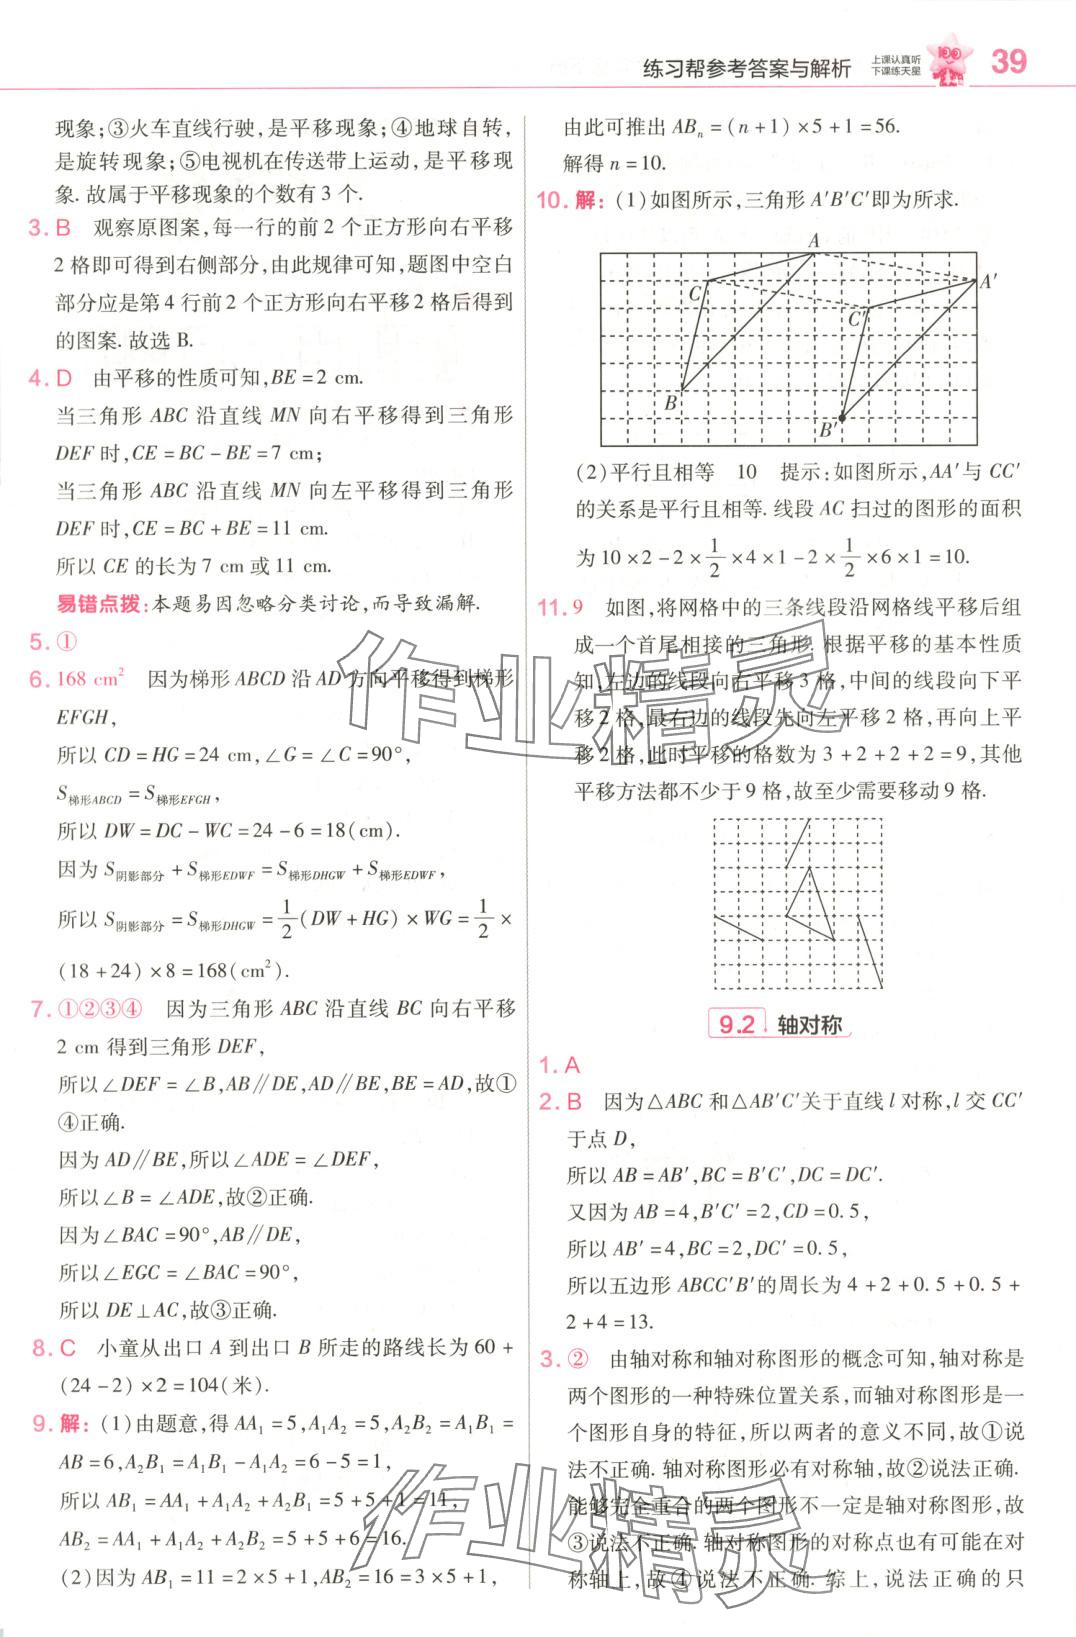 练习帮参考答案与解析
上课认真听
下课练天星
39
现象;③火车直线行驶,是平移现象;④地球自转,
是旋转现象;⑤电视机在传送带上运动,是平移现
象.故属于平移现象的个数有3个.
3. B 观察原图案,每一行的前2个正方形向右平移
2格即可得到右侧部分,由此规律可知,题图中空白
部分应是第4行前2个正方形向右平移2格后得到
的图案.故选B.
4. D 由平移的性质可知,BE=2 cm.
当三角形ABC沿直线MN向右平移得到三角形
DEF时,CE=BC-BE=7 cm;
当三角形ABC沿直线MN向左平移得到三角形
DEF时,CE=BC+BE=11 cm.
所以CE的长为7 cm或11 cm.
易错点拨:本题易因忽略分类讨论,而导致漏解.
5. ①
6. 168 cm² 因为梯形ABCD沿AD方向平移得到梯形
EFGH,
所以CD=HG=24 cm,∠G=∠C=90°,
S梯形ABCD=S梯形EFGH,
所以DW=DC-WC=24-6=18(cm).
因为S阴影部分+S梯形EDWF=S梯形DHGW+S梯形EDWF,
所以S阴影部分=S梯形DHGW=1/2(DW+HG)×WG=1/2×
(18+24)×8=168(cm²).
7. ①②③④ 因为三角形ABC沿直线BC向右平移
2 cm得到三角形DEF,
所以∠DEF=∠B,AB∥DE,AD∥BE,BE=AD,故①
④正确.
因为AD∥BE,所以∠ADE=∠DEF,
所以∠B=∠ADE,故②正确.
因为∠BAC=90°,AB∥DE,
所以∠EGC=∠BAC=90°,
所以DE⊥AC,故③正确.
8. C 小童从出口A到出口B所走的路线长为60+
(24-2)×2=104(米).
9. 解:(1)由题意,得AA₁=5,A₁A₂=5,A₂B₂=A₁B₁=
AB=6,A₂B₁=A₁B₁-A₁A₂=6-5=1,
所以AB₁=AA₁+A₁A₂+A₂B₁=5+5+1=11,
AB₂=AA₁+A₁A₂+A₂B₂=5+5+6=16.
(2)因为AB₁=11=2×5+1,AB₂=16=3×5+1,
由此可推出ABₙ=(n+1)×5+1=56.
解得n=10.
10. 解:(1)如图所示,三角形A′B′C′即为所求.
A
A′
C
C′
B
B′
(2)平行且相等 10 提示:如图所示,AA′与CC′
的关系是平行且相等.线段AC扫过的图形的面积
为10×2-2×1/2×4×1-2×1/2×6×1=10.
11. 9 如图,将网格中的三条线段沿网格线平移后组
成一个首尾相接的三角形.根据平移的基本性质
知,左边的线段向右平移3格,中间的线段向下平
移2格,最右边的线段先向左平移2格,再向上平
移2格,此时平移的格数为3+2+2+2=9,其他
平移方法都不少于9格,故至少需要移动9格.
9.2 轴对称
1. A
2. B 因为△ABC和△AB′C′关于直线l对称,l交CC′
于点D,
所以AB=AB′,BC=B′C′,DC=DC′.
又因为AB=4,B′C′=2,CD=0.5,
所以AB′=4,BC=2,DC′=0.5,
所以五边形ABCC′B′的周长为4+2+0.5+0.5+
2+4=13.
3. ② 由轴对称和轴对称图形的概念可知,轴对称是
两个图形的一种特殊位置关系,而轴对称图形是一
个图形自身的特征,所以两者的意义不同,故①说
法不正确.轴对称图形必有对称轴,故②说法正确.
能够完全重合的两个图形不一定是轴对称图形,故
③说法不正确.轴对称图形的对称点也有可能在对
称轴上,故④说法不正确.综上,说法正确的只
作业精灵
作业精灵